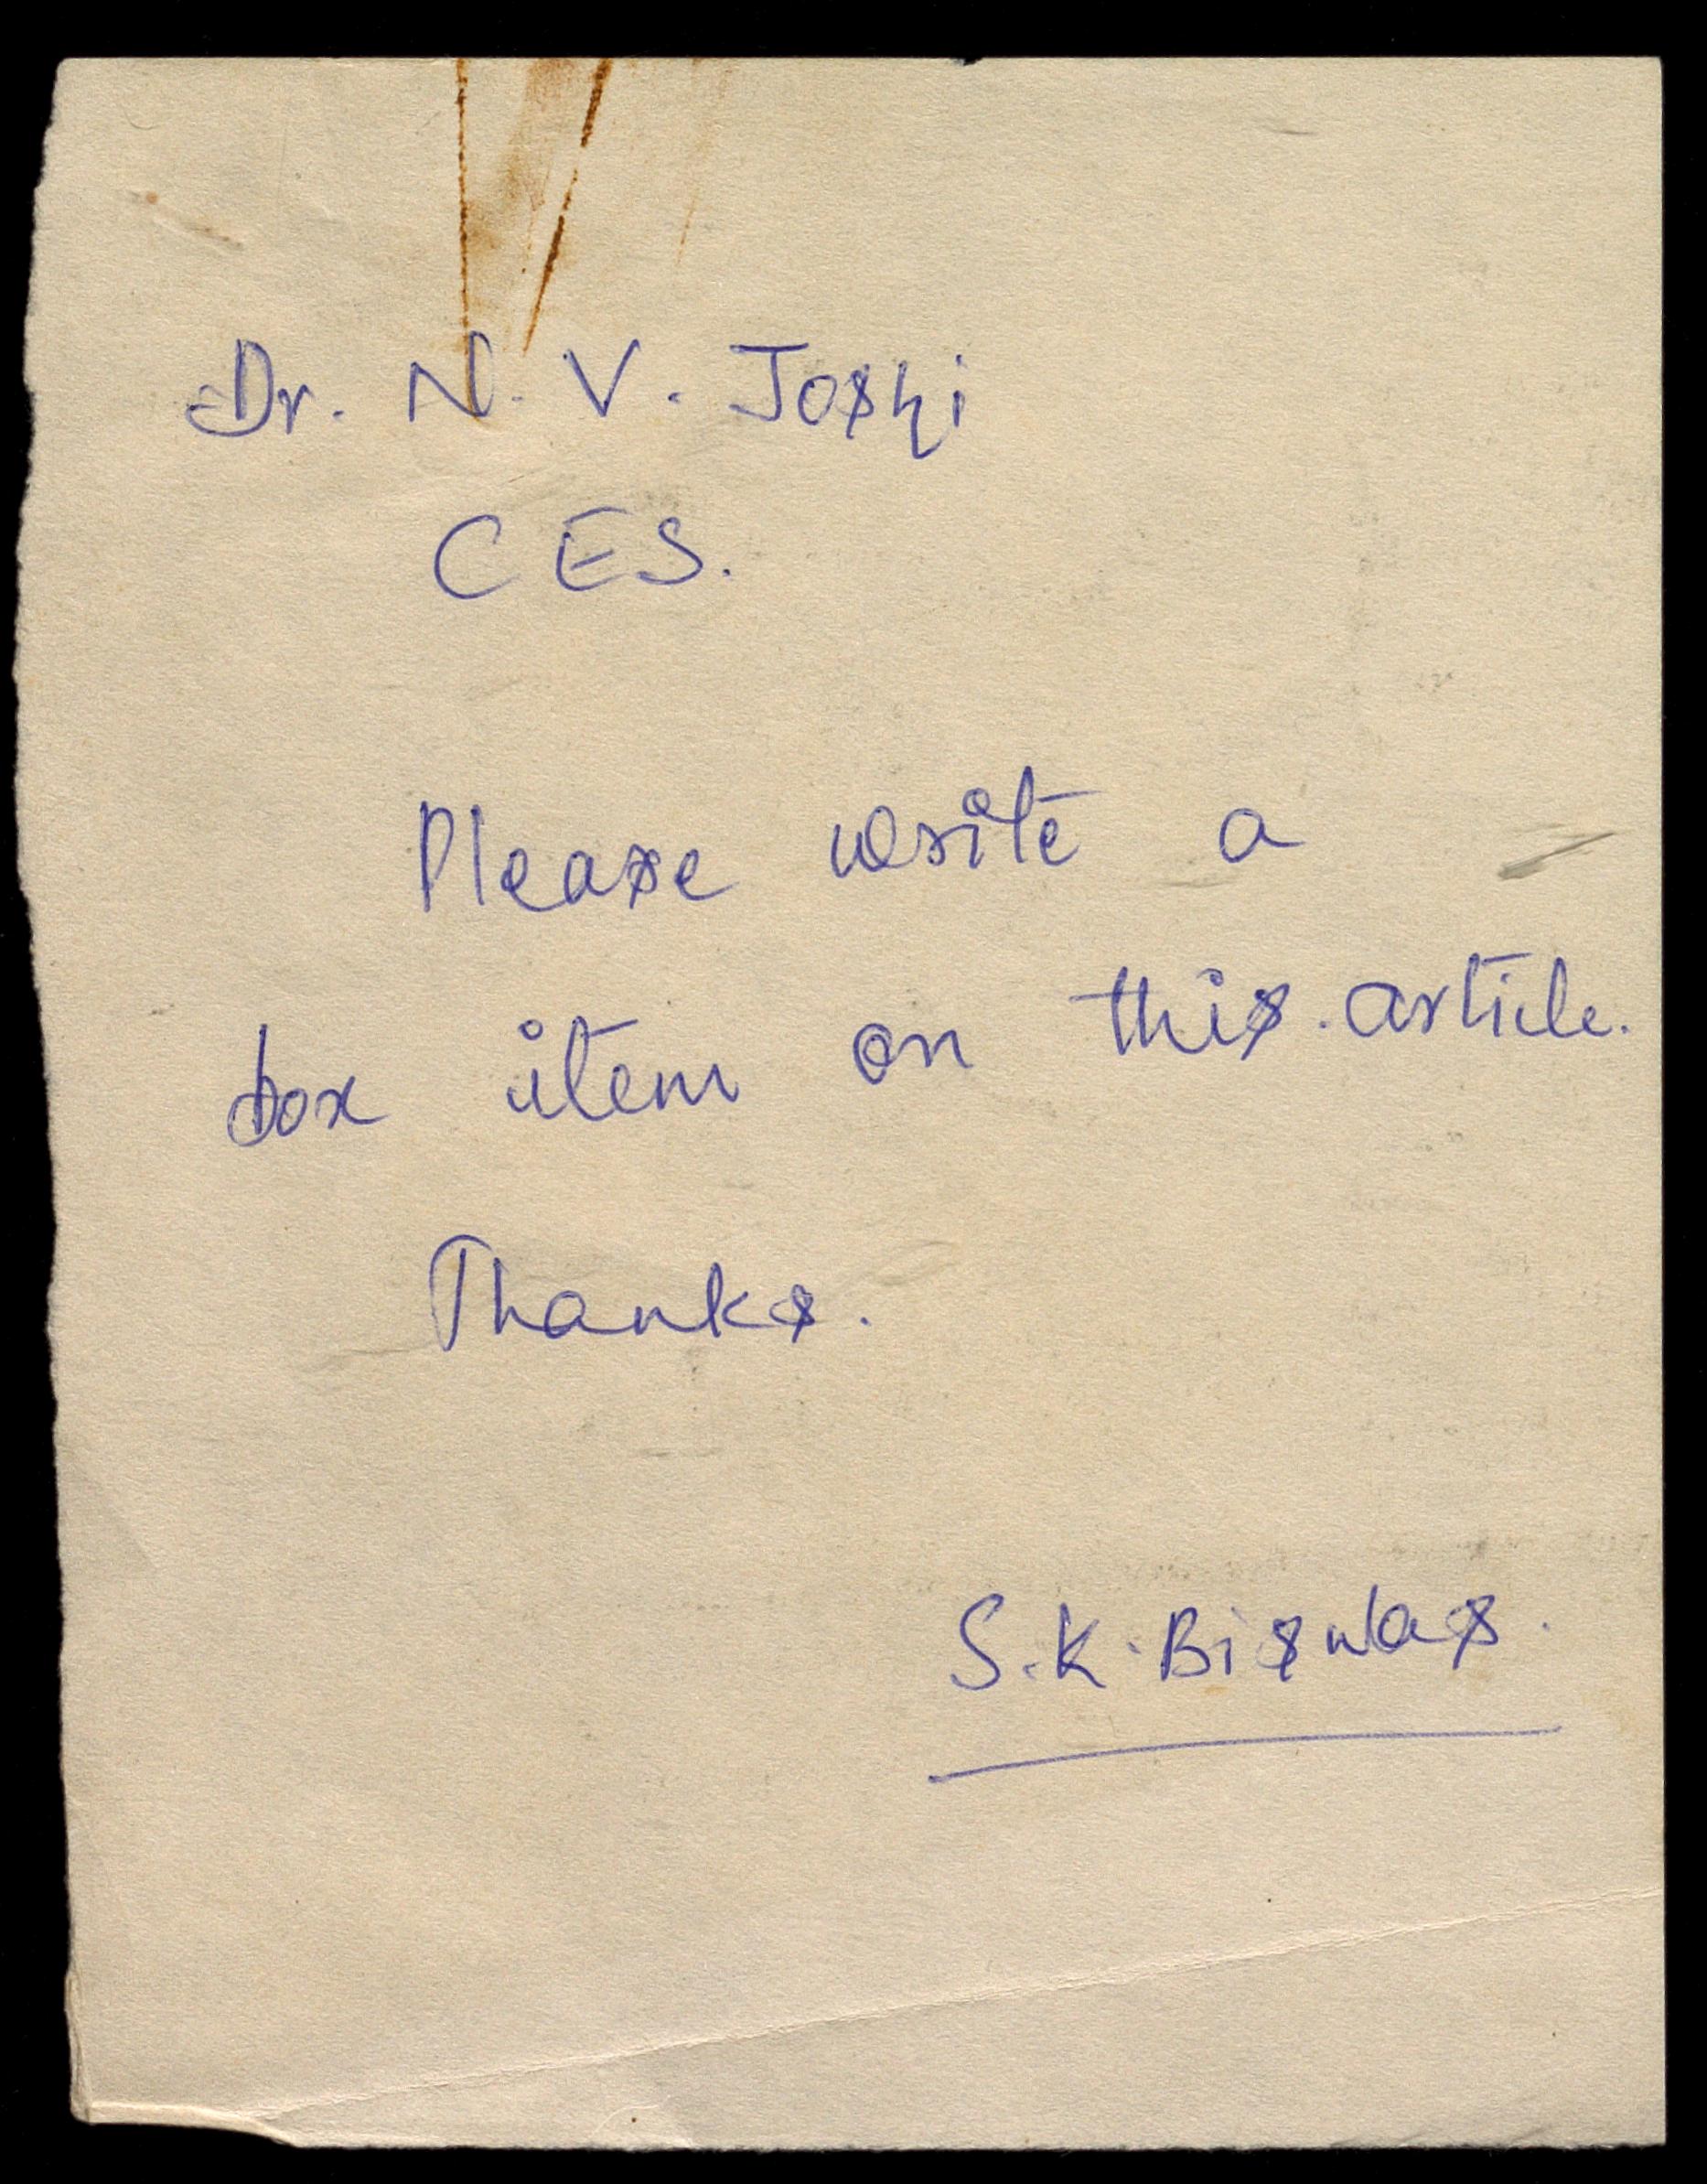 Dr. N. V. Joshi
CES.
Please write a
box item on this article.
Thanks.
S. K. Biswas.